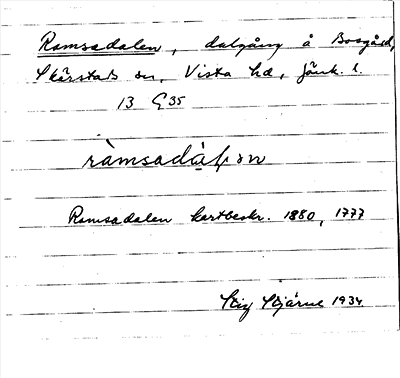 Ramsadalen, dalgång å Bosgård,
Skärstads sn, Vista hd, Jönk. l.
13 G 35
ràmsadà̱ḷən
Ramsadalen kartbeskr. 1880, 1777
Stig Stjärne 1934